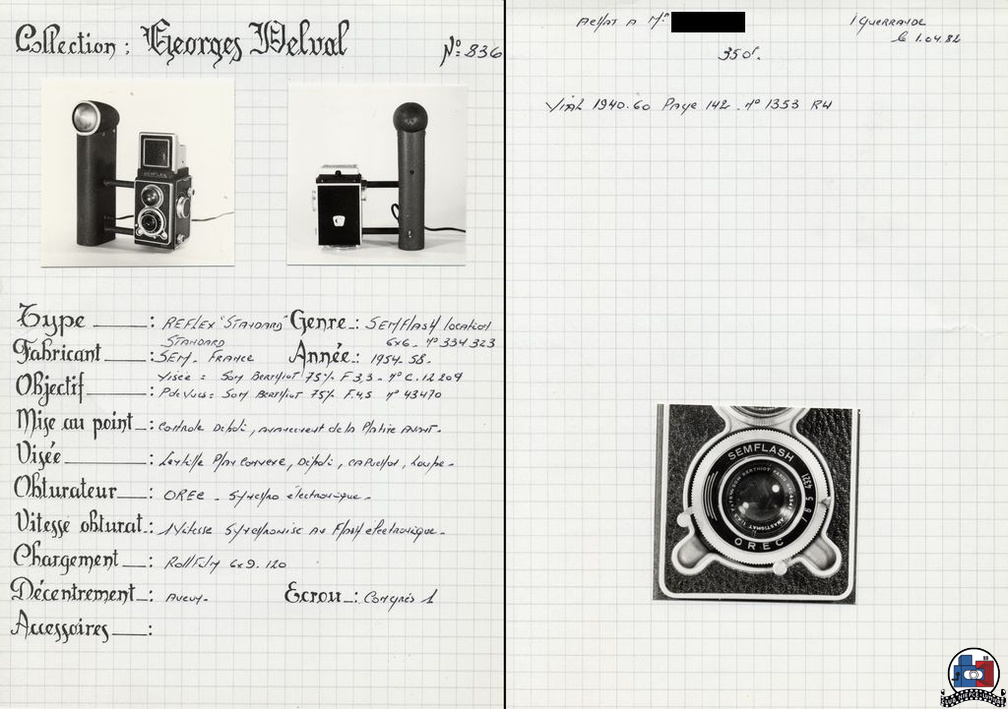 Collection : Georges Delval
N°: 836
Type : REFLEX "STANDARD" Genre : SEMFLASH location
STANDARD 6x6 - N° 334 323
Fabricant : SEM - FRANCE Année : 1954-58.
Visée : SOM BERTHIOT 75% F 3,3 - N° C.12 209
Objectif : P de Vues : SOM BERTHIOT 75% F.4,5 N° 43470
Mise au point : Contrôle Dépoli, avancement de la Platine AVANT.
Visée : Lentille Plan Convexe, Dépoli, capuchon, Loupe -
Obturateur : OREC - Synchro électronique -
Vitesse obturat. : 1 Vitesse Synchronisé au Flash électronique -
Chargement : Rollfilm 6x9. 120
Décentrement : Aucun - Ecrou : Congrès 1
Accessoires :
Achat A Mr
350f.
le 1.04.82
VIAL 1940.60 Page 142 - N° 1353 R4
SEMFLASH
OREC